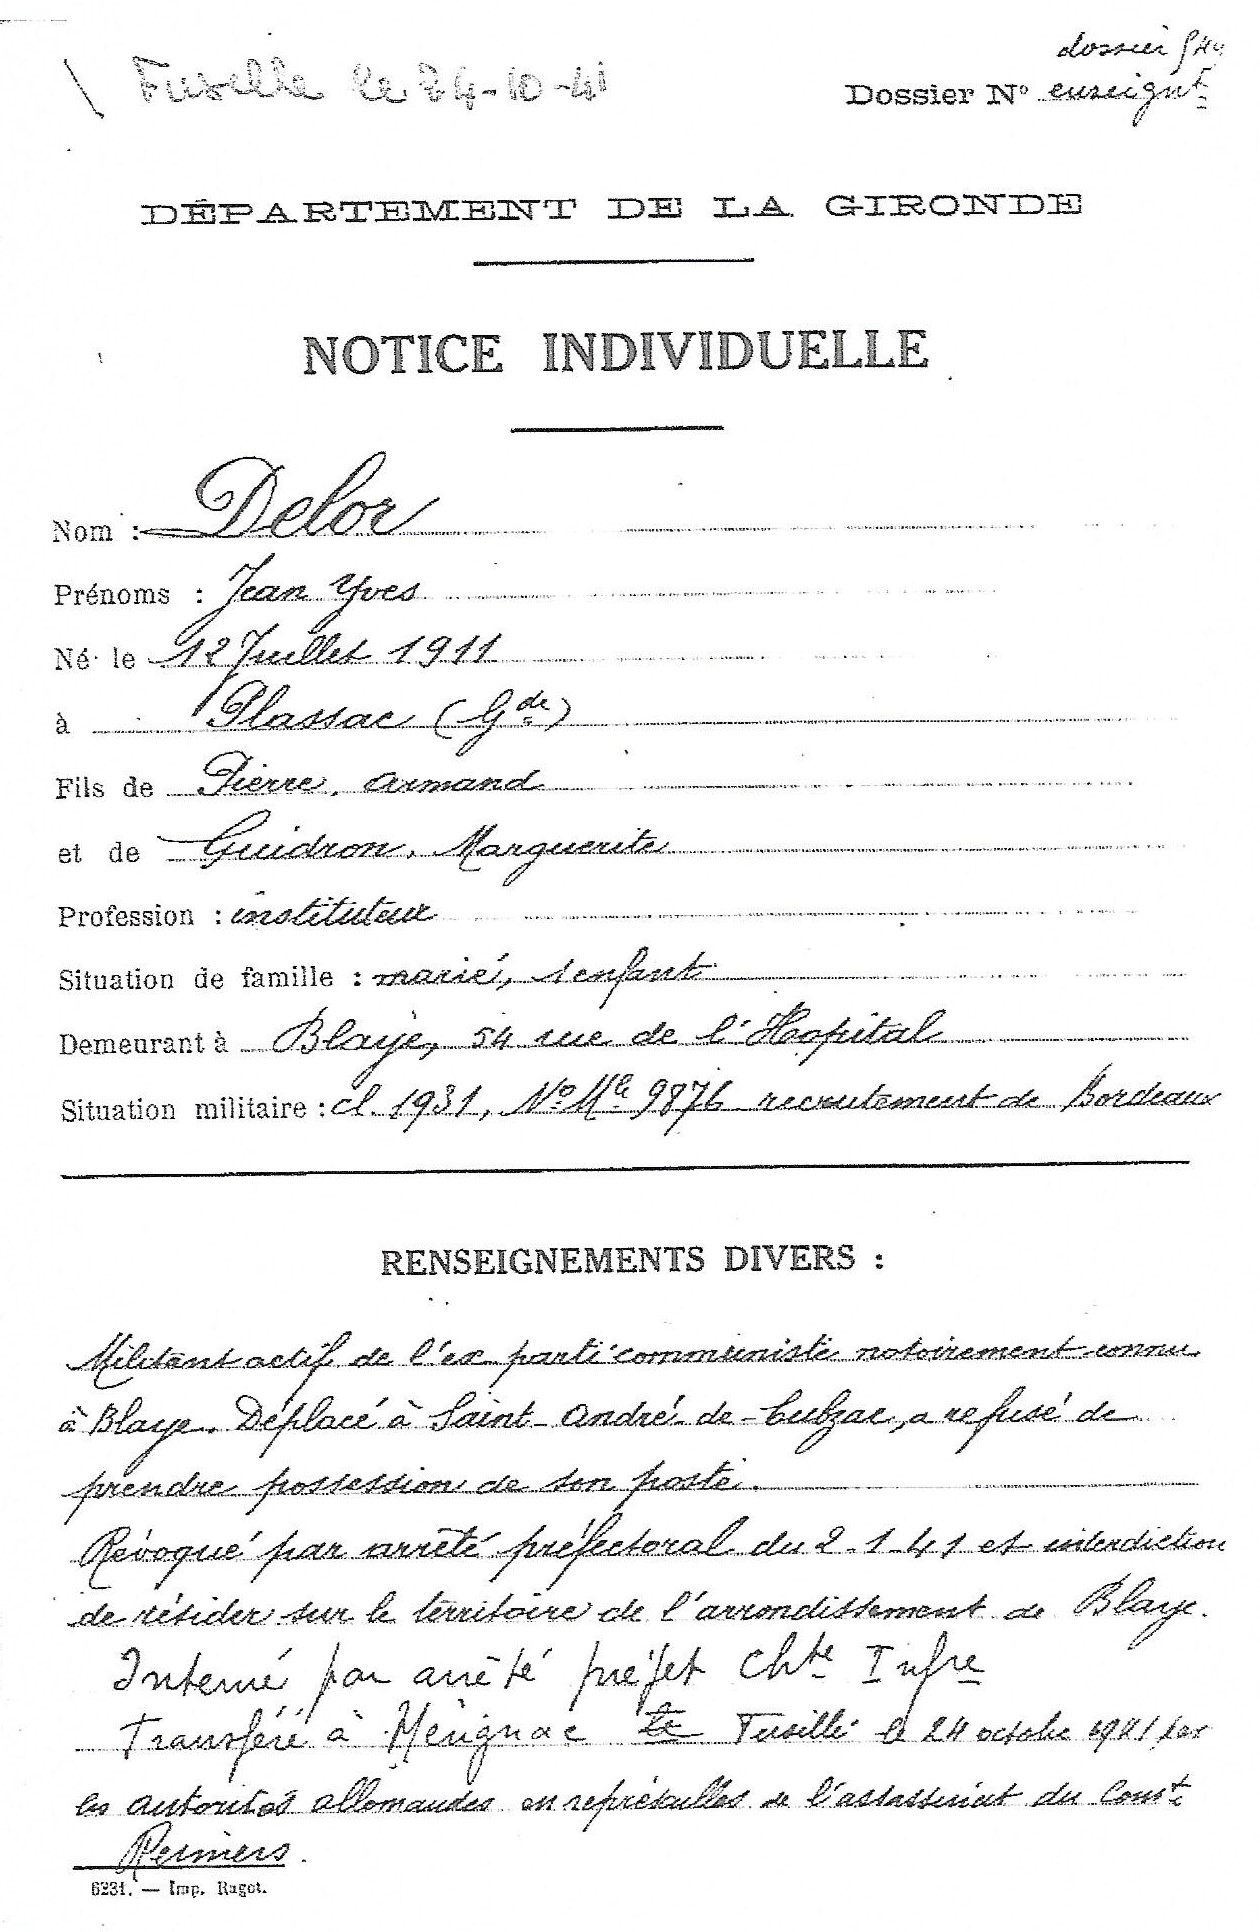 dossier 544
Fusillé le 24-10-41
Dossier N° enseignt
DÉPARTEMENT DE LA GIRONDE
NOTICE INDIVIDUELLE
Nom : Delor
Prénoms : Jean Yves
Né le 12 Juillet 1911
à Plassac (Gde)
Fils de Pierre, Armand
et de Guidron, Marguerite
Profession : instituteur
Situation de famille : marié, 1 enfant
Demeurant à Blaye, 54 rue de l'Hopital
Situation militaire : cl. 1931, N° Mle 9876 recrutement de Bordeaux
RENSEIGNEMENTS DIVERS :
Militant actif de l'ex parti communiste notoirement connu
à Blaye. Déplacé à Saint-André-de-Cubzac, a refusé de
prendre possession de son poste.
Révoqué par arrêté préfectoral du 2-1-41 et interdiction
de résider sur le territoire de l'arrondissement de Blaye.
Interné par arrêté préfet Chte Infre
Transféré à Mérignac le Fusillé le 24 octobre 1941 par
les autorités allemandes en représailles de l'assassinat du Comt
Reimers.
6231. — Imp. Ragot.